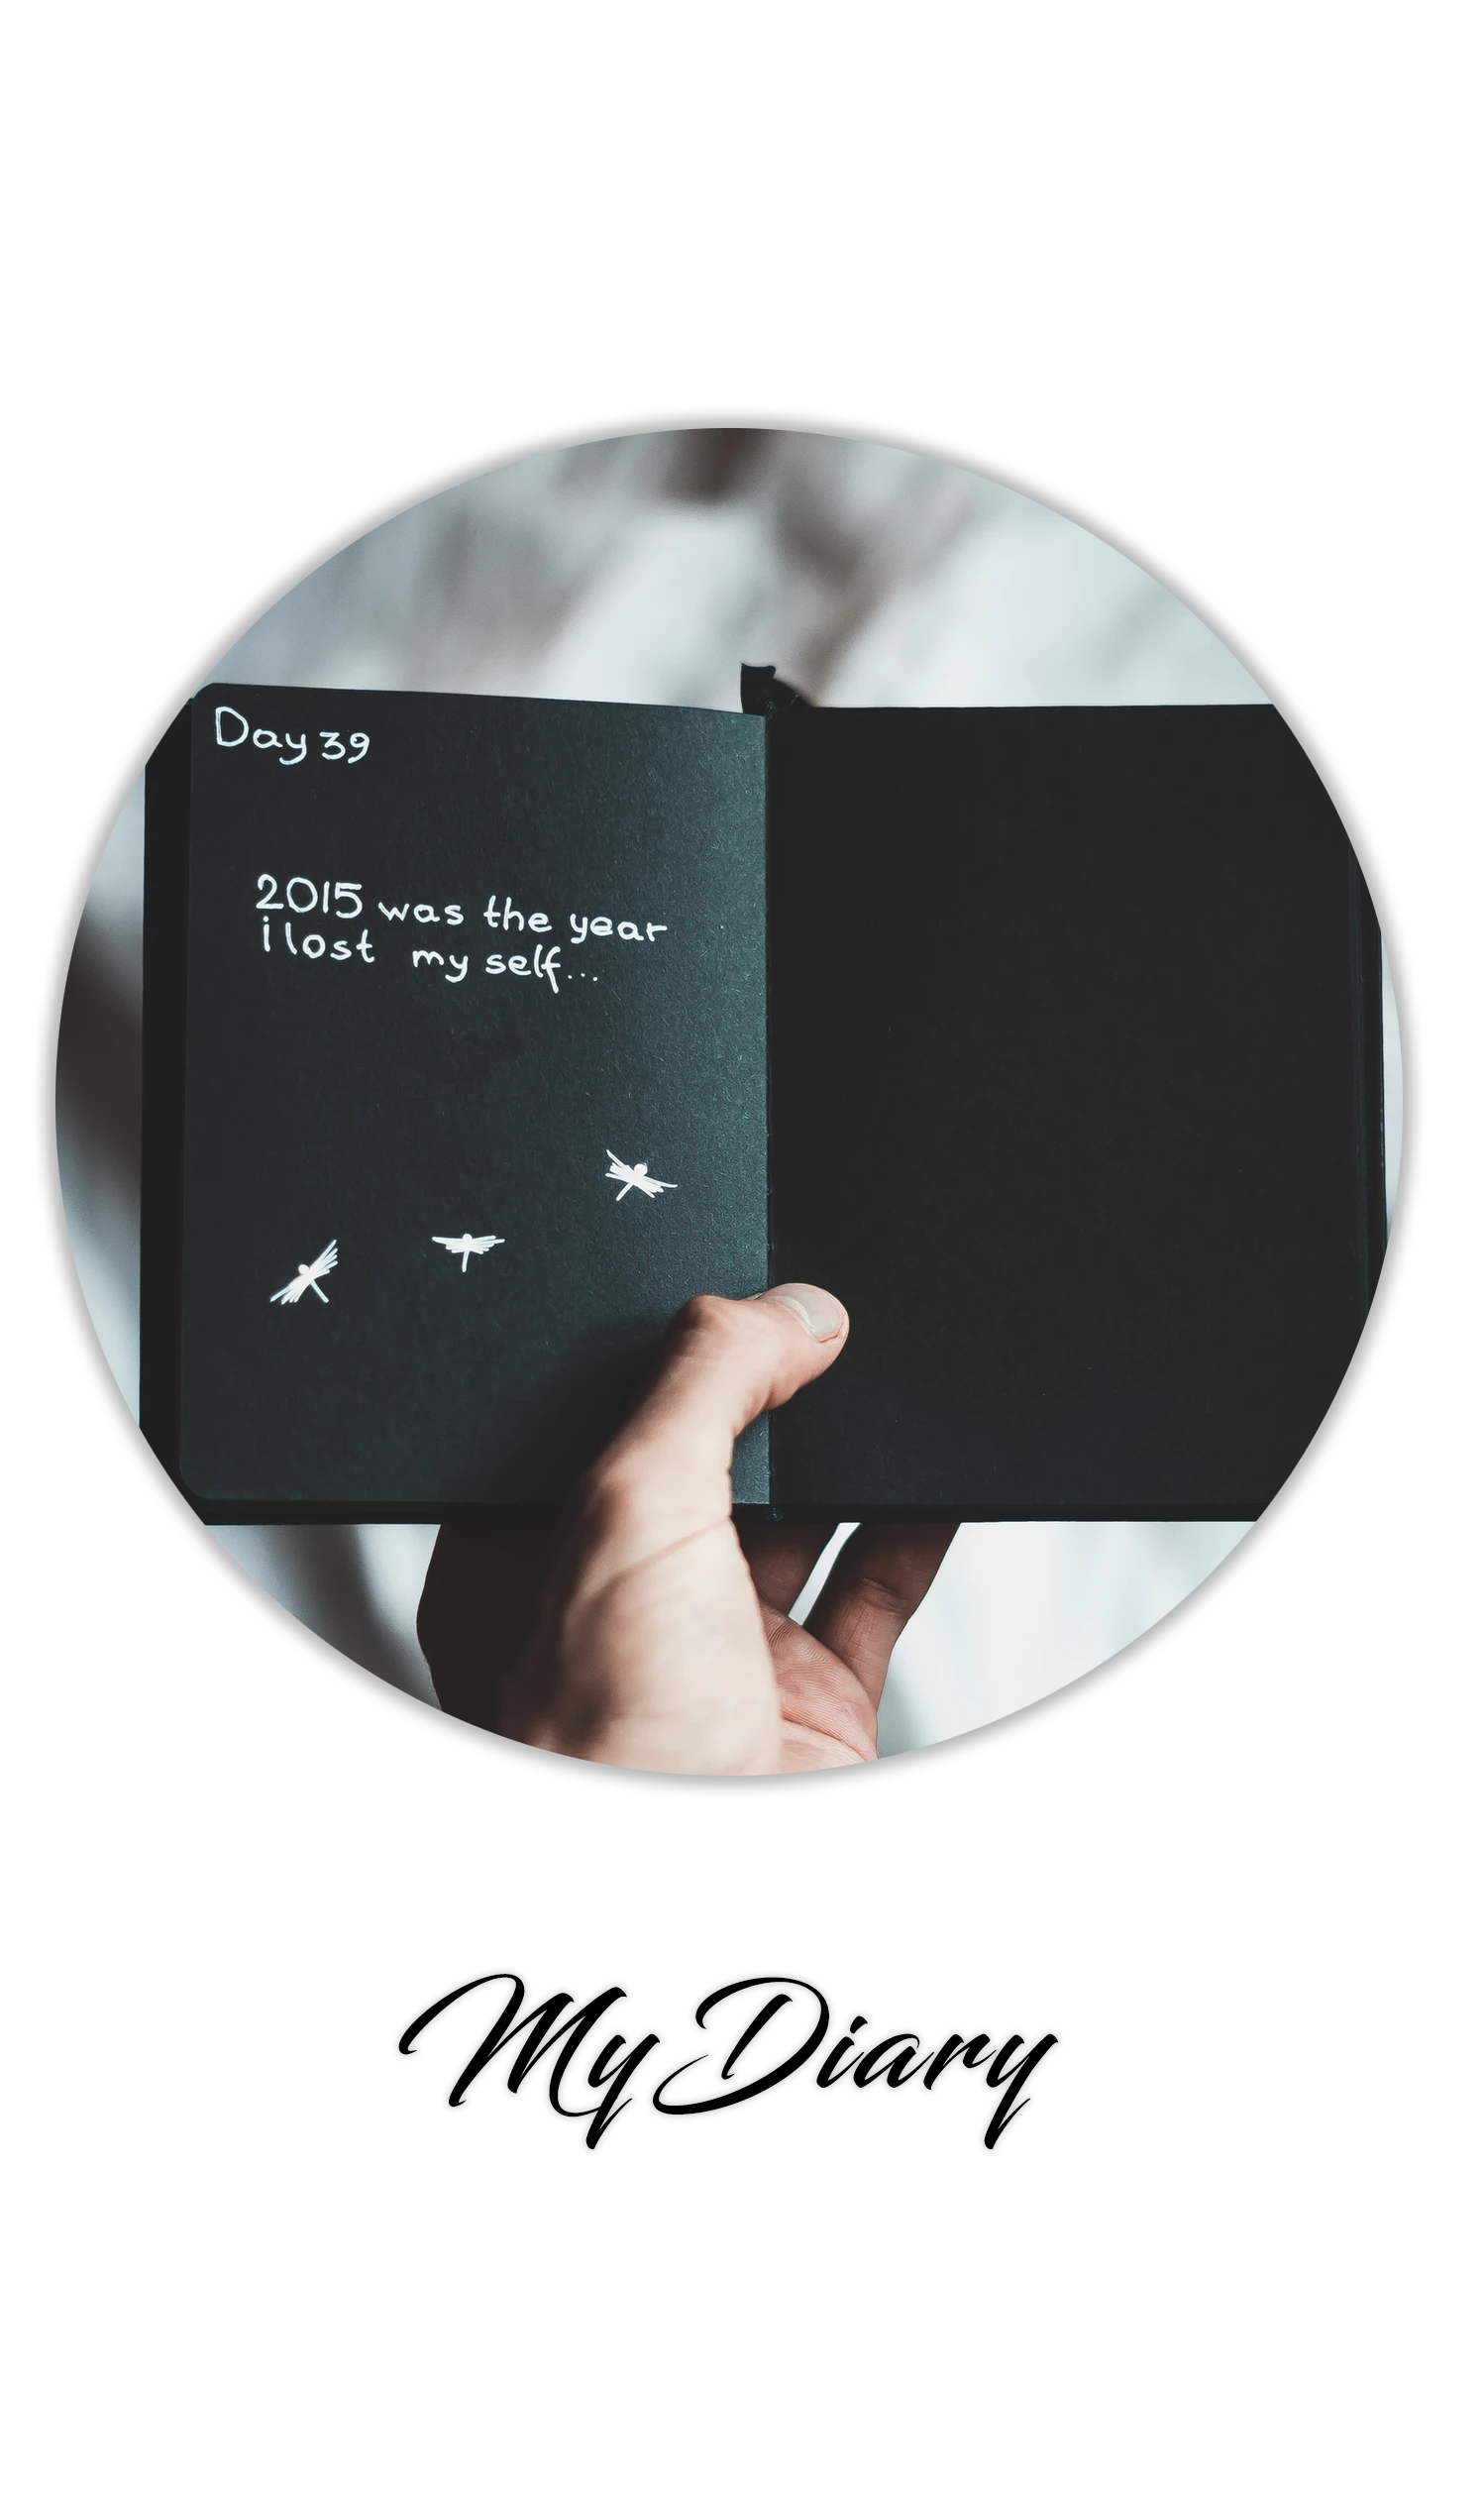 Day 39
2015 was the year
i lost my self...
My Diary